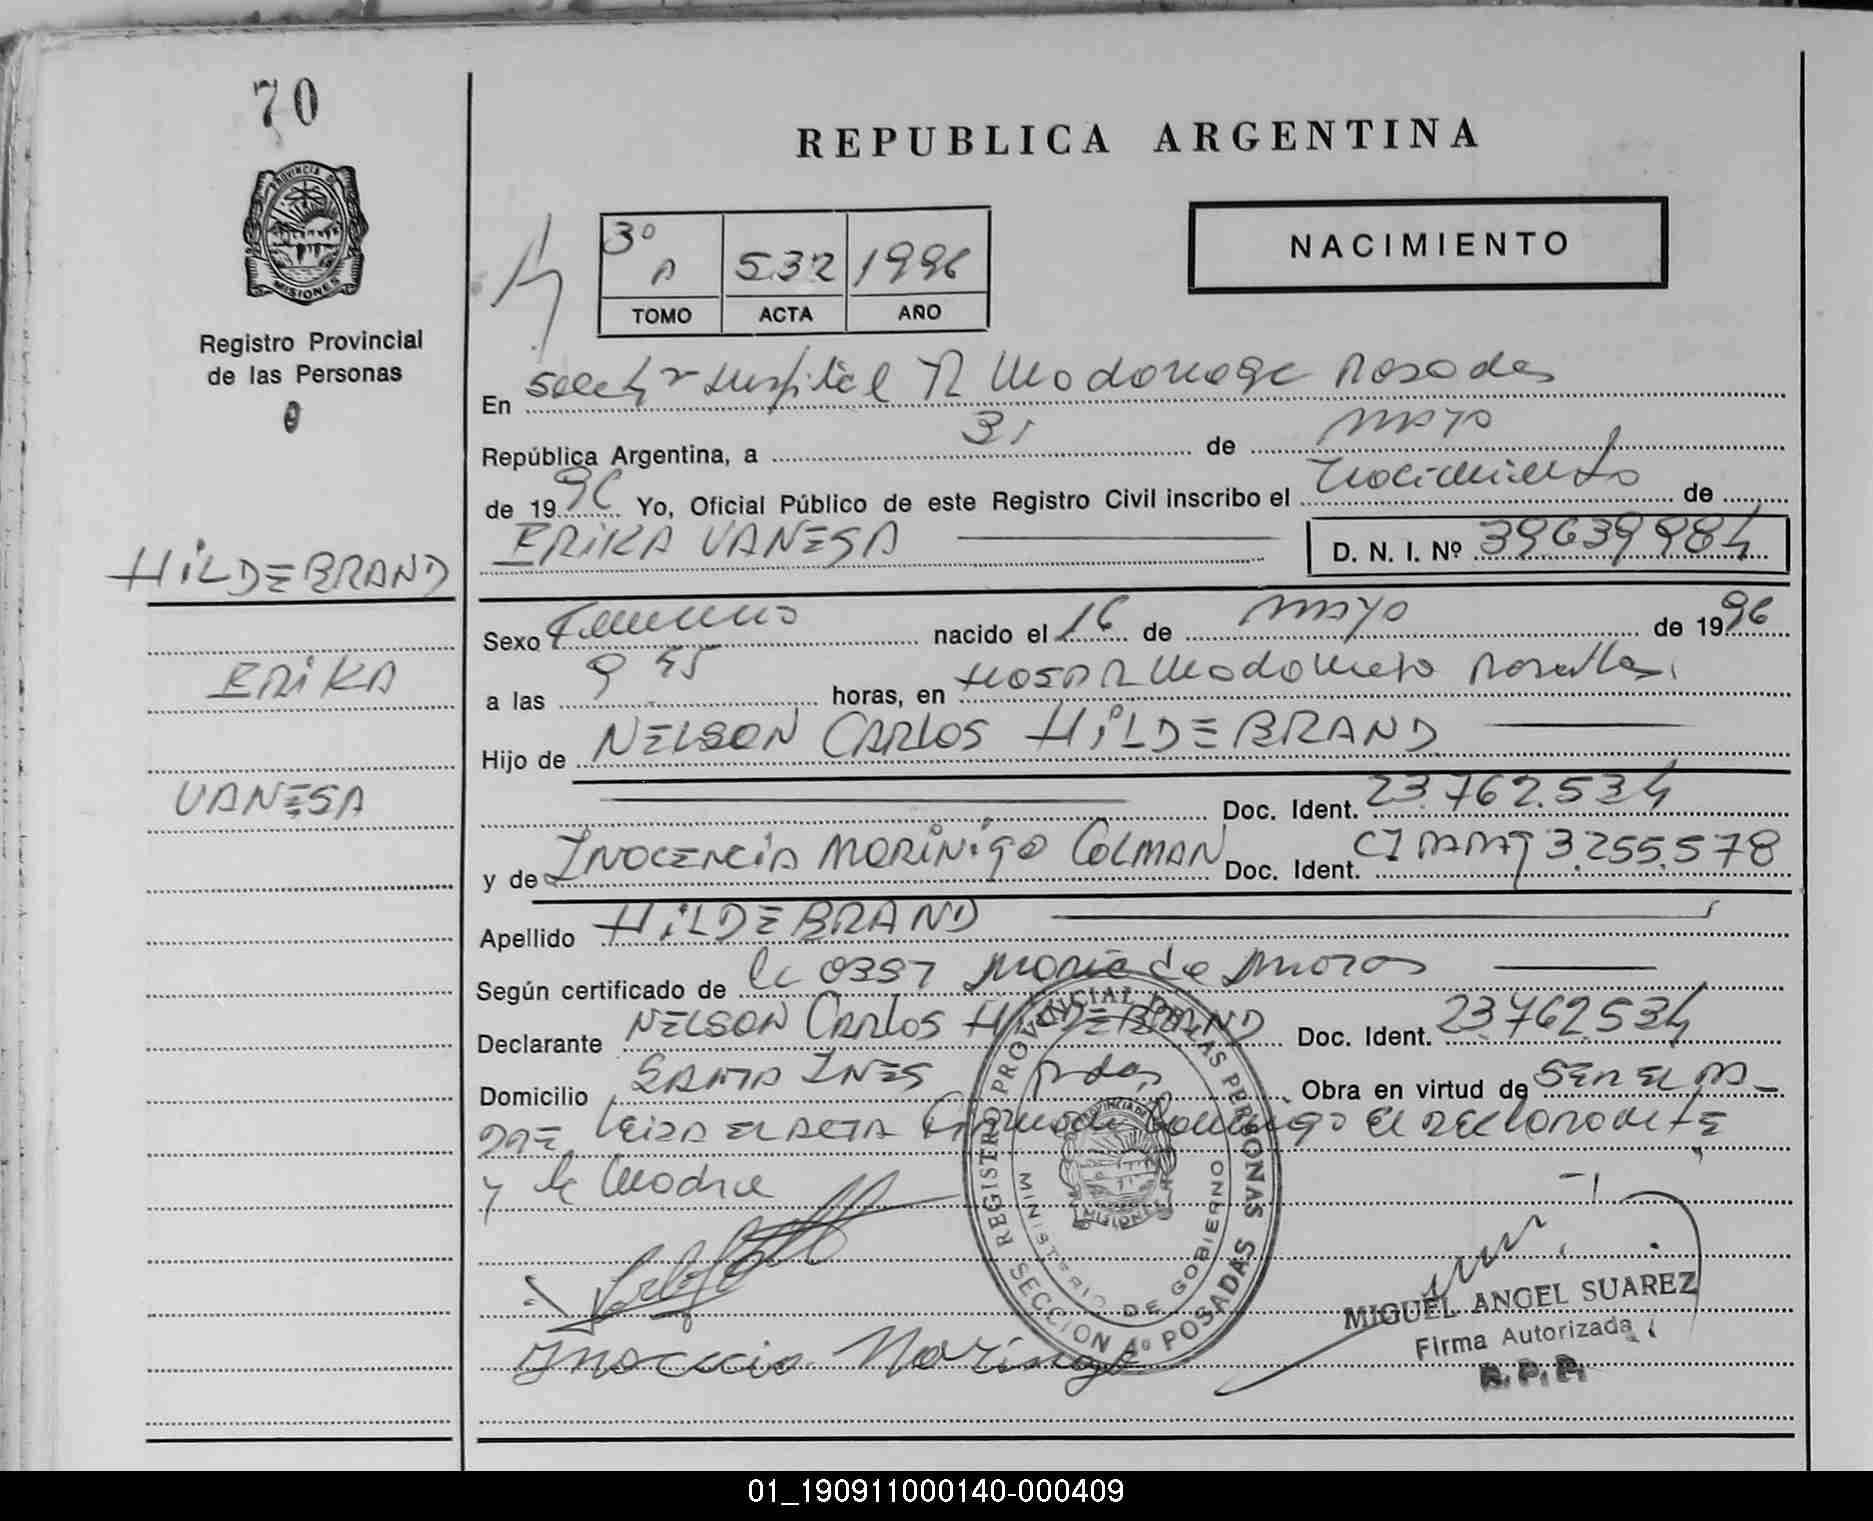 70
REPUBLICA ARGENTINA
PROVINCIA DE
MISIONES
Registro Provincial
de las Personas
NACIMIENTO
3º A 532 1996
TOMO ACTA AÑO
En Hospital R Madariaga Posadas
República Argentina, a 31 de mayo
de 1996 Yo, Oficial Público de este Registro Civil inscribo el nacimiento de
ERIKA VANESA D. N. I. Nº 39639984
HILDEBRAND
Sexo Femenino nacido el 16 de mayo de 1996
ERIKA
a las 9 45 horas, en HOSP R Madariaga Posadas
Hijo de NELSON CARLOS HILDEBRAND
VANESA
Doc. Ident. 23.762.534
y de INOCENCIA MORINIGO COLMAN Doc. Ident. 3.255.578
Apellido HILDEBRAND
Según certificado de la OBST
Declarante NELSON CARLOS HILDEBRAND Doc. Ident. 23.762.534
Domicilio SANTA INES Pdas Obra en virtud de SER EL PA-
DRE LEIDA EL ACTA Firman conmigo el declarante
y la Madre
REGISTRO PROVINCIAL DE LAS PERSONAS
MINISTERIO DE GOBIERNO
PROVINCIA DE
MISIONES
SECCION 4º POSADAS
MIGUEL ANGEL SUAREZ
Firma Autorizada
R. P. P.
Inocencia Morinigo
01_190911000140-000409